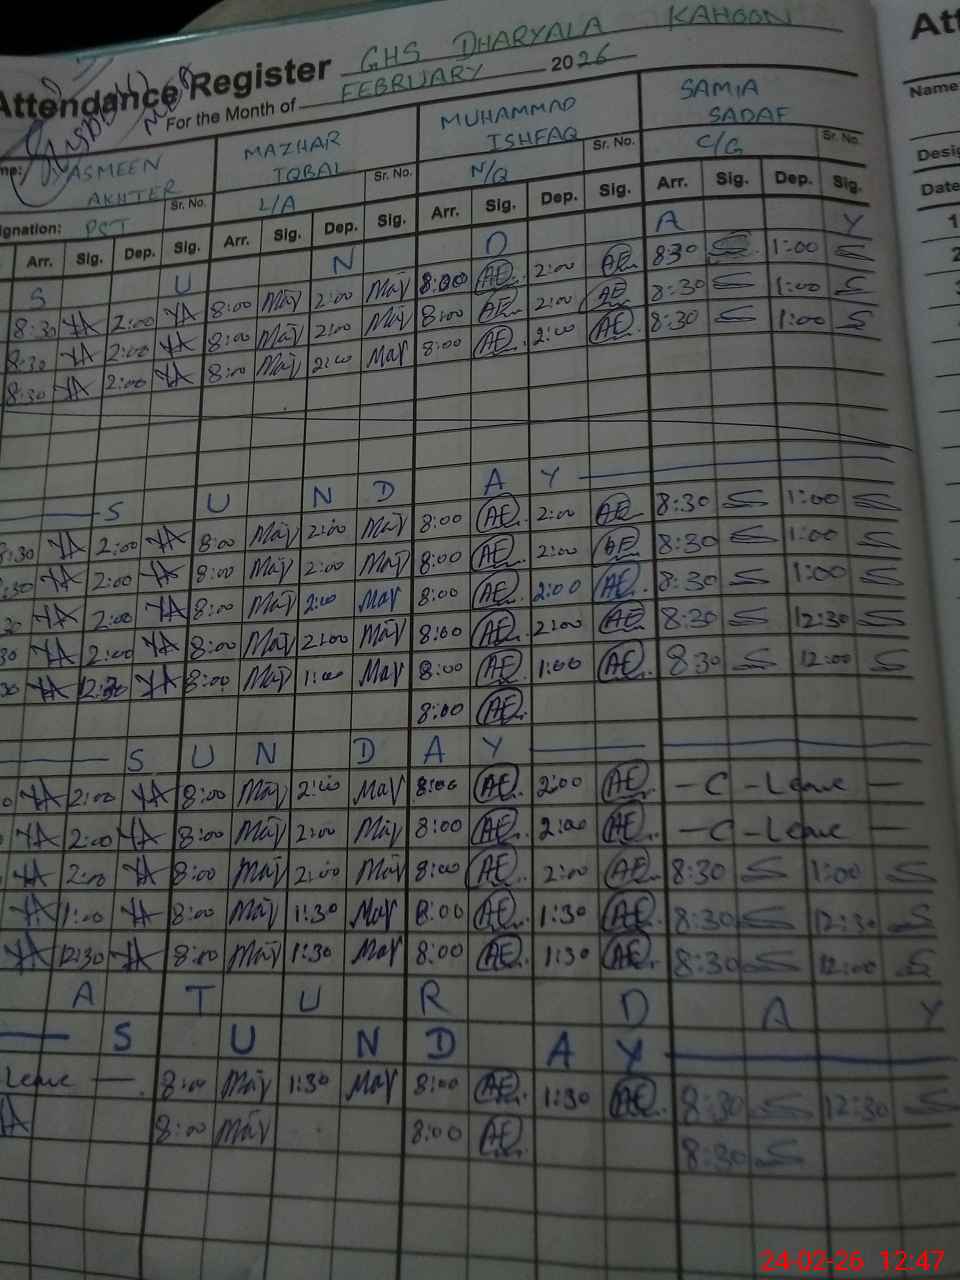 Attendance Register GHS DHARYALA KAHOON
For the Month of FEBRUARY 2026
YASMEEN AKHTER MAZHAR IQBAL MUHAMMAD ISHFAQ SAMIA SADAF
Sr. No. L/A Sr. No. N/Q Sr. No. C/G Sr. No.
Designation: PST
Arr. Sig. Dep. Sig. Arr. Sig. Dep. Sig. Arr. Sig. Dep. Sig. Arr. Sig. Dep. Sig.
S U N D A Y
8:30 YA 2:00 YA 8:00 May 2:00 May 8:00 AE 2:00 AE 8:30 S 1:00 S
8:30 YA 2:00 YA 8:00 May 2:00 May 8:00 AE 2:00 AE 8:30 S 1:00 S
8:30 YA 2:00 YA 8:00 May 2:00 May 8:00 AE 2:00 AE 8:30 S 1:00 S
S U N D A Y
8:30 YA 2:00 YA 8:00 May 2:00 May 8:00 AE 2:00 AE 8:30 S 1:00 S
:30 YA 2:00 YA 8:00 May 2:00 May 8:00 AE 2:00 AE 8:30 S 1:00 S
30 YA 2:00 YA 8:00 May 2:00 May 8:00 AE 2:00 AE 8:30 S 1:00 S
30 YA 2:00 YA 8:00 May 2:00 May 8:00 AE 2:00 AE 8:30 S 12:30 S
30 YA 12:30 YA 8:00 May 1:00 May 8:00 AE 1:00 AE 8:30 S 12:00 S
8:00 AE
S U N D A Y
0 YA 2:00 YA 8:00 May 2:00 May 8:00 AE 2:00 AE - C - Leave -
YA 2:00 YA 8:00 May 2:00 May 8:00 AE 2:00 AE - C - Leave -
YA 2:00 YA 8:00 May 2:00 May 8:00 AE 2:00 AE 8:30 S 1:00 S
YA 1:00 YA 8:00 May 1:30 May 8:00 AE 1:30 AE 8:30 S 12:30 S
YA 12:30 YA 8:00 May 1:30 May 8:00 AE 1:30 AE 8:30 S 12:00 S
A T U R D A Y
S U N D A Y
Leave - 8:00 May 1:30 May 8:00 AE 1:30 AE 8:30 S 12:30 S
YA 8:00 May 8:00 AE 8:30 S
Att
Name
Desig
Date
1
2
24-02-26 12:47